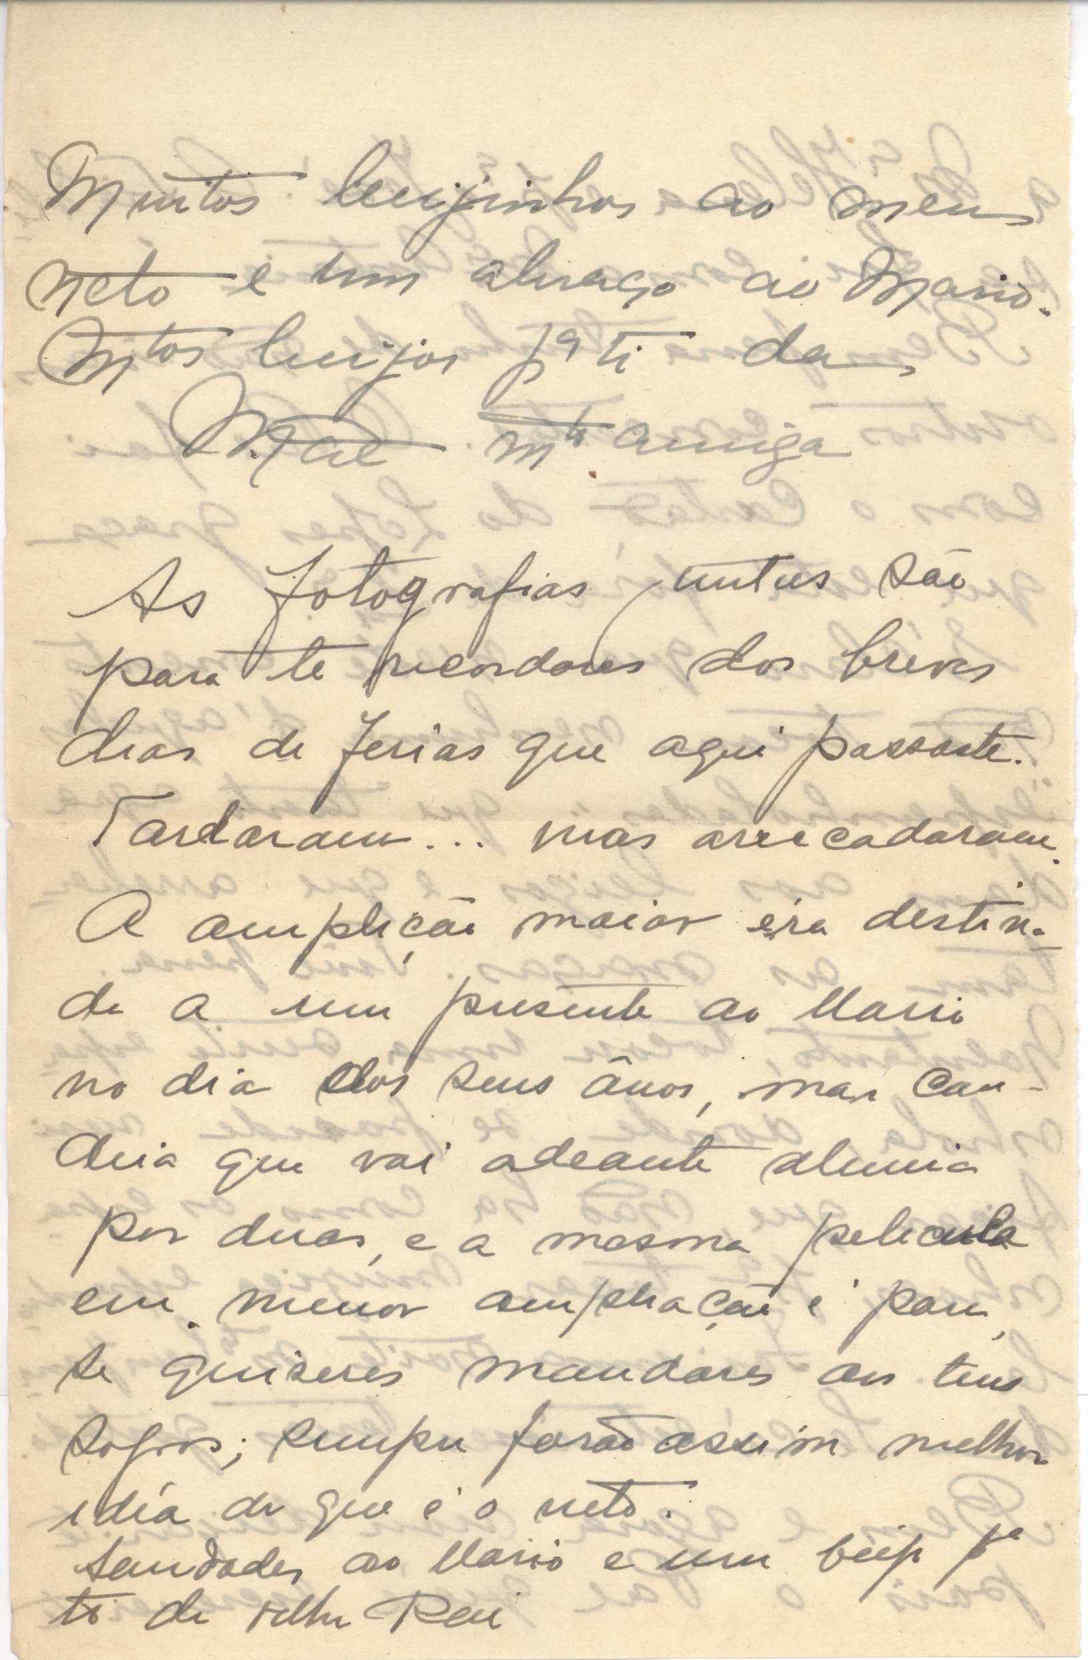 Muitos beijinhos ao meu
neto e um abraço ao Mario.
Mtos beijos pa ti da
Mãe mto amiga
As fotografias juntas são
para te recordares dos breves
dias de ferias que aqui passaste.
Tardaram... mas arrecadaram.
A amplição maior era destina-
da a um presente ao Mario
no dia dos seus ânos, mas can-
deia que vai adeante alumia
por duas, e a mesma pelicula
em menor ampliação é para
se quiseres mandares aos teus
sogros; sempre farão assim melhor
idía do que é o neto.
Saudades ao Mario e um beijo pa
ti do velho Pai